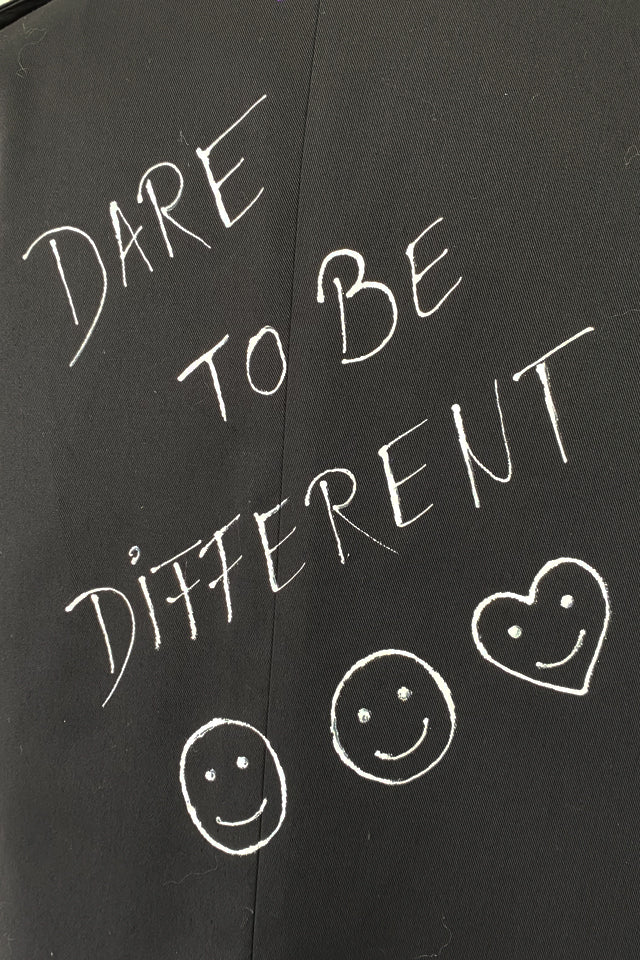 DARE
TO BE
DiFFERENT